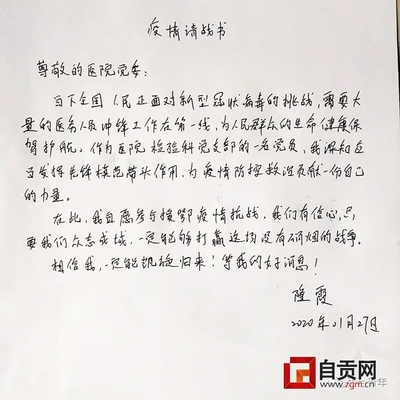 疫情请战书
尊敬的医院党委：
当下全国人民正面对新型冠状病毒的挑战，需要大
量的医务人员冲锋工作在第一线，为人民群众的生命健康保
驾护航。作为医院检验科党支部的一名党员，我深知应
当发挥先锋模范带头作用，为疫情防控救治贡献一份自己
的力量。
在此，我自愿参与援鄂疫情抗战。我们有信心，只
要我们众志成城，一定能够打赢这场没有硝烟的战争。
相信我，一定能凯旋归来！等我们的好消息！
隆霞
2020年01月27日
自贡网
www.zgm.cn